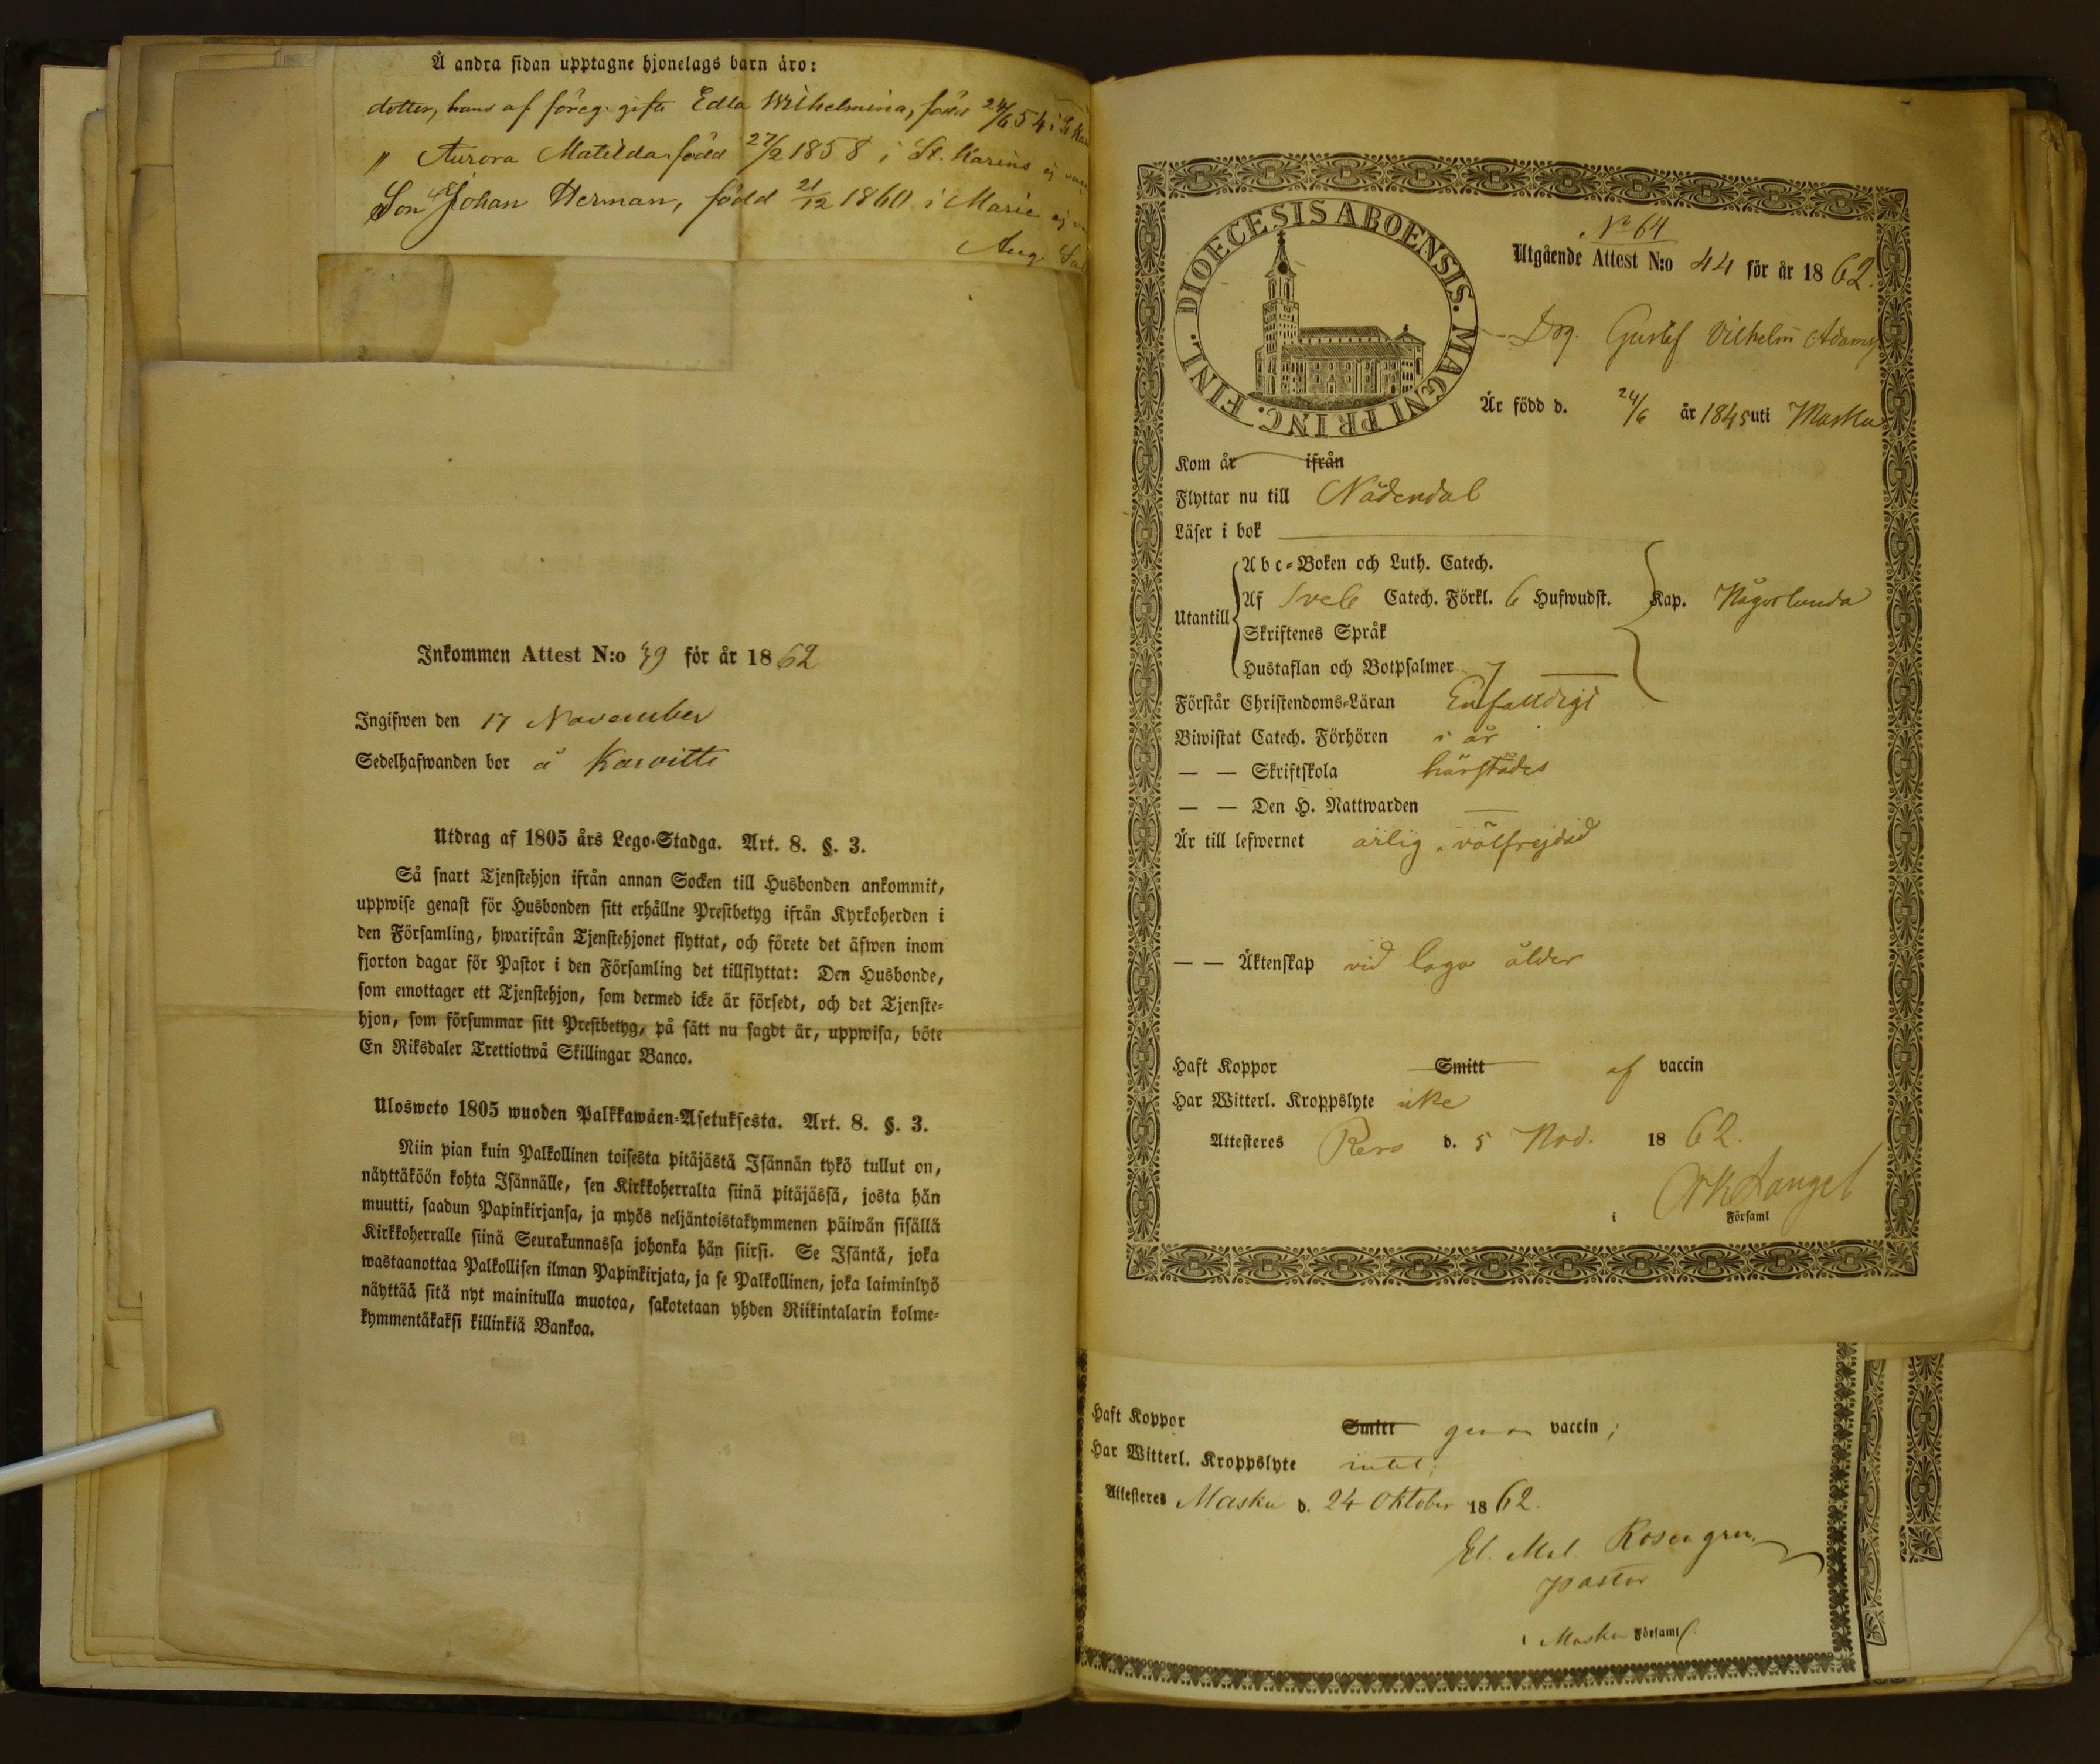 Å andra sidan upptagne hjonelags barn äro:
dotter, hans af föreg. gifte Edla Wilhelmina, född 24/6 54 i St Ka
" Aurora Matilda född 27/2 1858 i St. Karins ej
Son Johan Herman, född 21/12 1860 i Marie ej
Aug.
Inkommen Attest N:o 39 för år 1862
Ingifwen den 17 November
Sedelhafwanden bor å Karvitti
Utdrag af 1805 års Lego-Stadga. Art. 8. §. 3.
Så snart Tjenstehjon ifrån annan Socken till Husbonden ankommit,
uppwise genast för Husbonden sitt erhållne Prestbetyg ifrån Kyrkoherden i
den Församling, hwarifrån Tjenstehjonet flyttat, och förete det äfwen inom
fjorton dagar för Pastor i den Församling det tillflyttat: Den Husbonde,
som emottager ett Tjenstehjon, som dermed icke är försedt, och det Tjenste-
hjon, som försummar sitt Prestbetyg, på sätt nu sagdt är, uppwisa, böte
En Riksdaler Trettiotwå Skillingar Banco.
Ulosweto 1805 wuoden Palkkawäen-Asetuksesta. Art. 8. §. 3.
Niin pian kuin Palkollinen toisesta pitäjästä Isännän tykö tullut on,
näyttäköön kohta Isännälle, sen Kirkkoherralta siinä pitäjässä, josta hän
muutti, saadun Papinkirjansa, ja myös neljäntoistakymmenen päiwän sisällä
Kirkkoherralle siinä Seurakunnassa johonka hän siirsi. Se Isäntä, joka
wastaanottaa Palkollisen ilman Papinkirjata, ja se Palkollinen, joka laiminlyö
näyttää sitä nyt mainitulla muotoa, sakotetaan yhden Riikintalarin kolme-
kymmentäkaksi killinkiä Bankoa.
DIOECESIS ABOENSIS. MAGNI PRINC. FINL.
No 64
Utgående Attest N:o 44 för år 1862.
Drg. Gustef Vilhelm Adams
Är född d. 24/6 år 1845 uti Masku
Kom år ifrån
Flyttar nu till Nådendal
Läser i bok
Abc-Boken och Luth. Catech.
Utantill Af Sveb Catech. Förkl. 6 Hufwudst. Kap. Någorlunda
Skriftenes Språk
Hustaflan och Botpsalmer
Förstår Christendoms-Läran Enfaldigt
Biwistat Catech. Förhören i år
— — Skriftskola härstädes
— — Den H. Nattwarden —
Är till lefwernet ärlig o. välfrejdad
— — Äktenskap vid laga ålder
Haft Koppor Smitt af vaccin
Har Witterl. Kroppslyte icke
Attesteres Reso d. 5 Nov. 1862.
i Församl
Haft Koppor Smitt genom vaccin;
Har Witterl. Kroppslyte intet;
Attesteres Masku d. 24 Oktober 1862.
Rosengren
pastor
i Masku Församl.